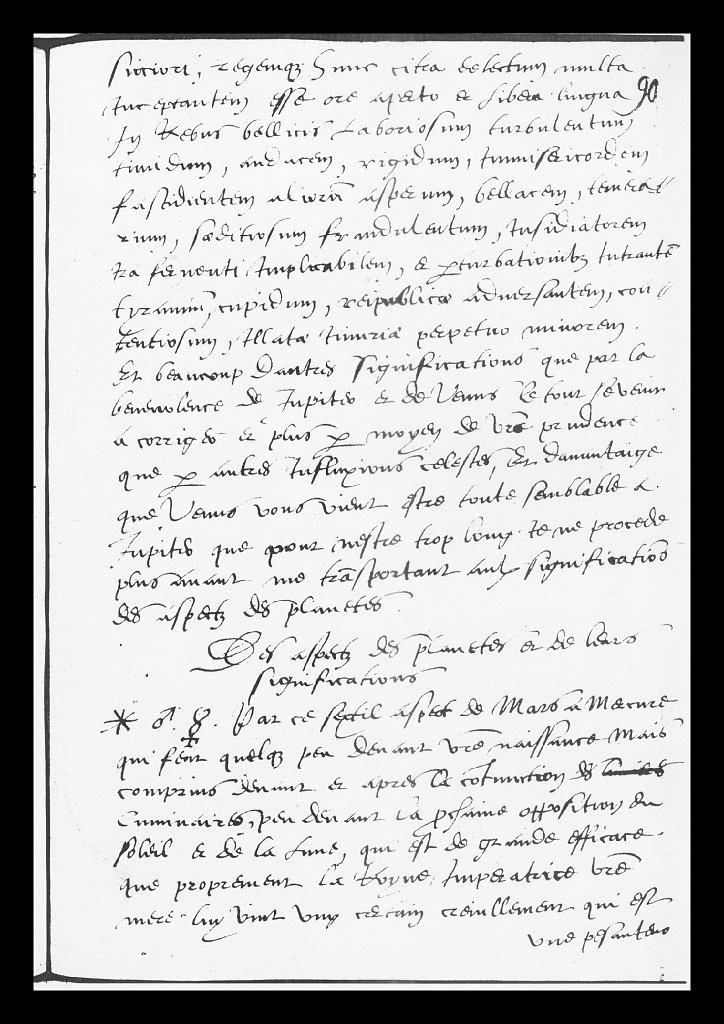 regemq hunc citra delectum multa
90
Inceptantem esse ore aperto et libera lingua
In Rebus bellicis Laboriosum turbulentum
timidum, audacem, rigidum, Immisericordem
fastidientem aliorũ asperum, bellacem, temera=
rium, sæditiosum fraudulentum, Insidiatorem
Ira ferventi Implicabilem, et perturbationibꝰ Intrantẽ
tyrannũ, cupidum, reipublicæ adversantem, con=
tentiosum, Illata Iniuria perpetuo minorem.
Et beaucoup dautres significations que par la
benevolence de Iupiter et de Venus le tout se vient
a corriger et plus p moyen de vrẽ prudence
que p autres Influxions celestes, Et davantaige
que Venus vous vient estre toute semblable a
Iupiter que pour nestre trop long Ie ne procede
plus avant me trãsportant aulx significatiõs
des aspectz des planetes.
Des aspectz des planetes et de leurs
significations
* ♂. ☿. Par ce sextil aspect de Mars a Mercure
qui feut quelq peu devant vrẽ naissance Mais
comprins devant et apres la coniunction des
Luminaires, peu devant la pchaine opposition du
soleil et de la Lune, qui est de grande efficace
que proprement la Royne Imperatrice vrẽ
mere luy vint vng certain qui est
vne